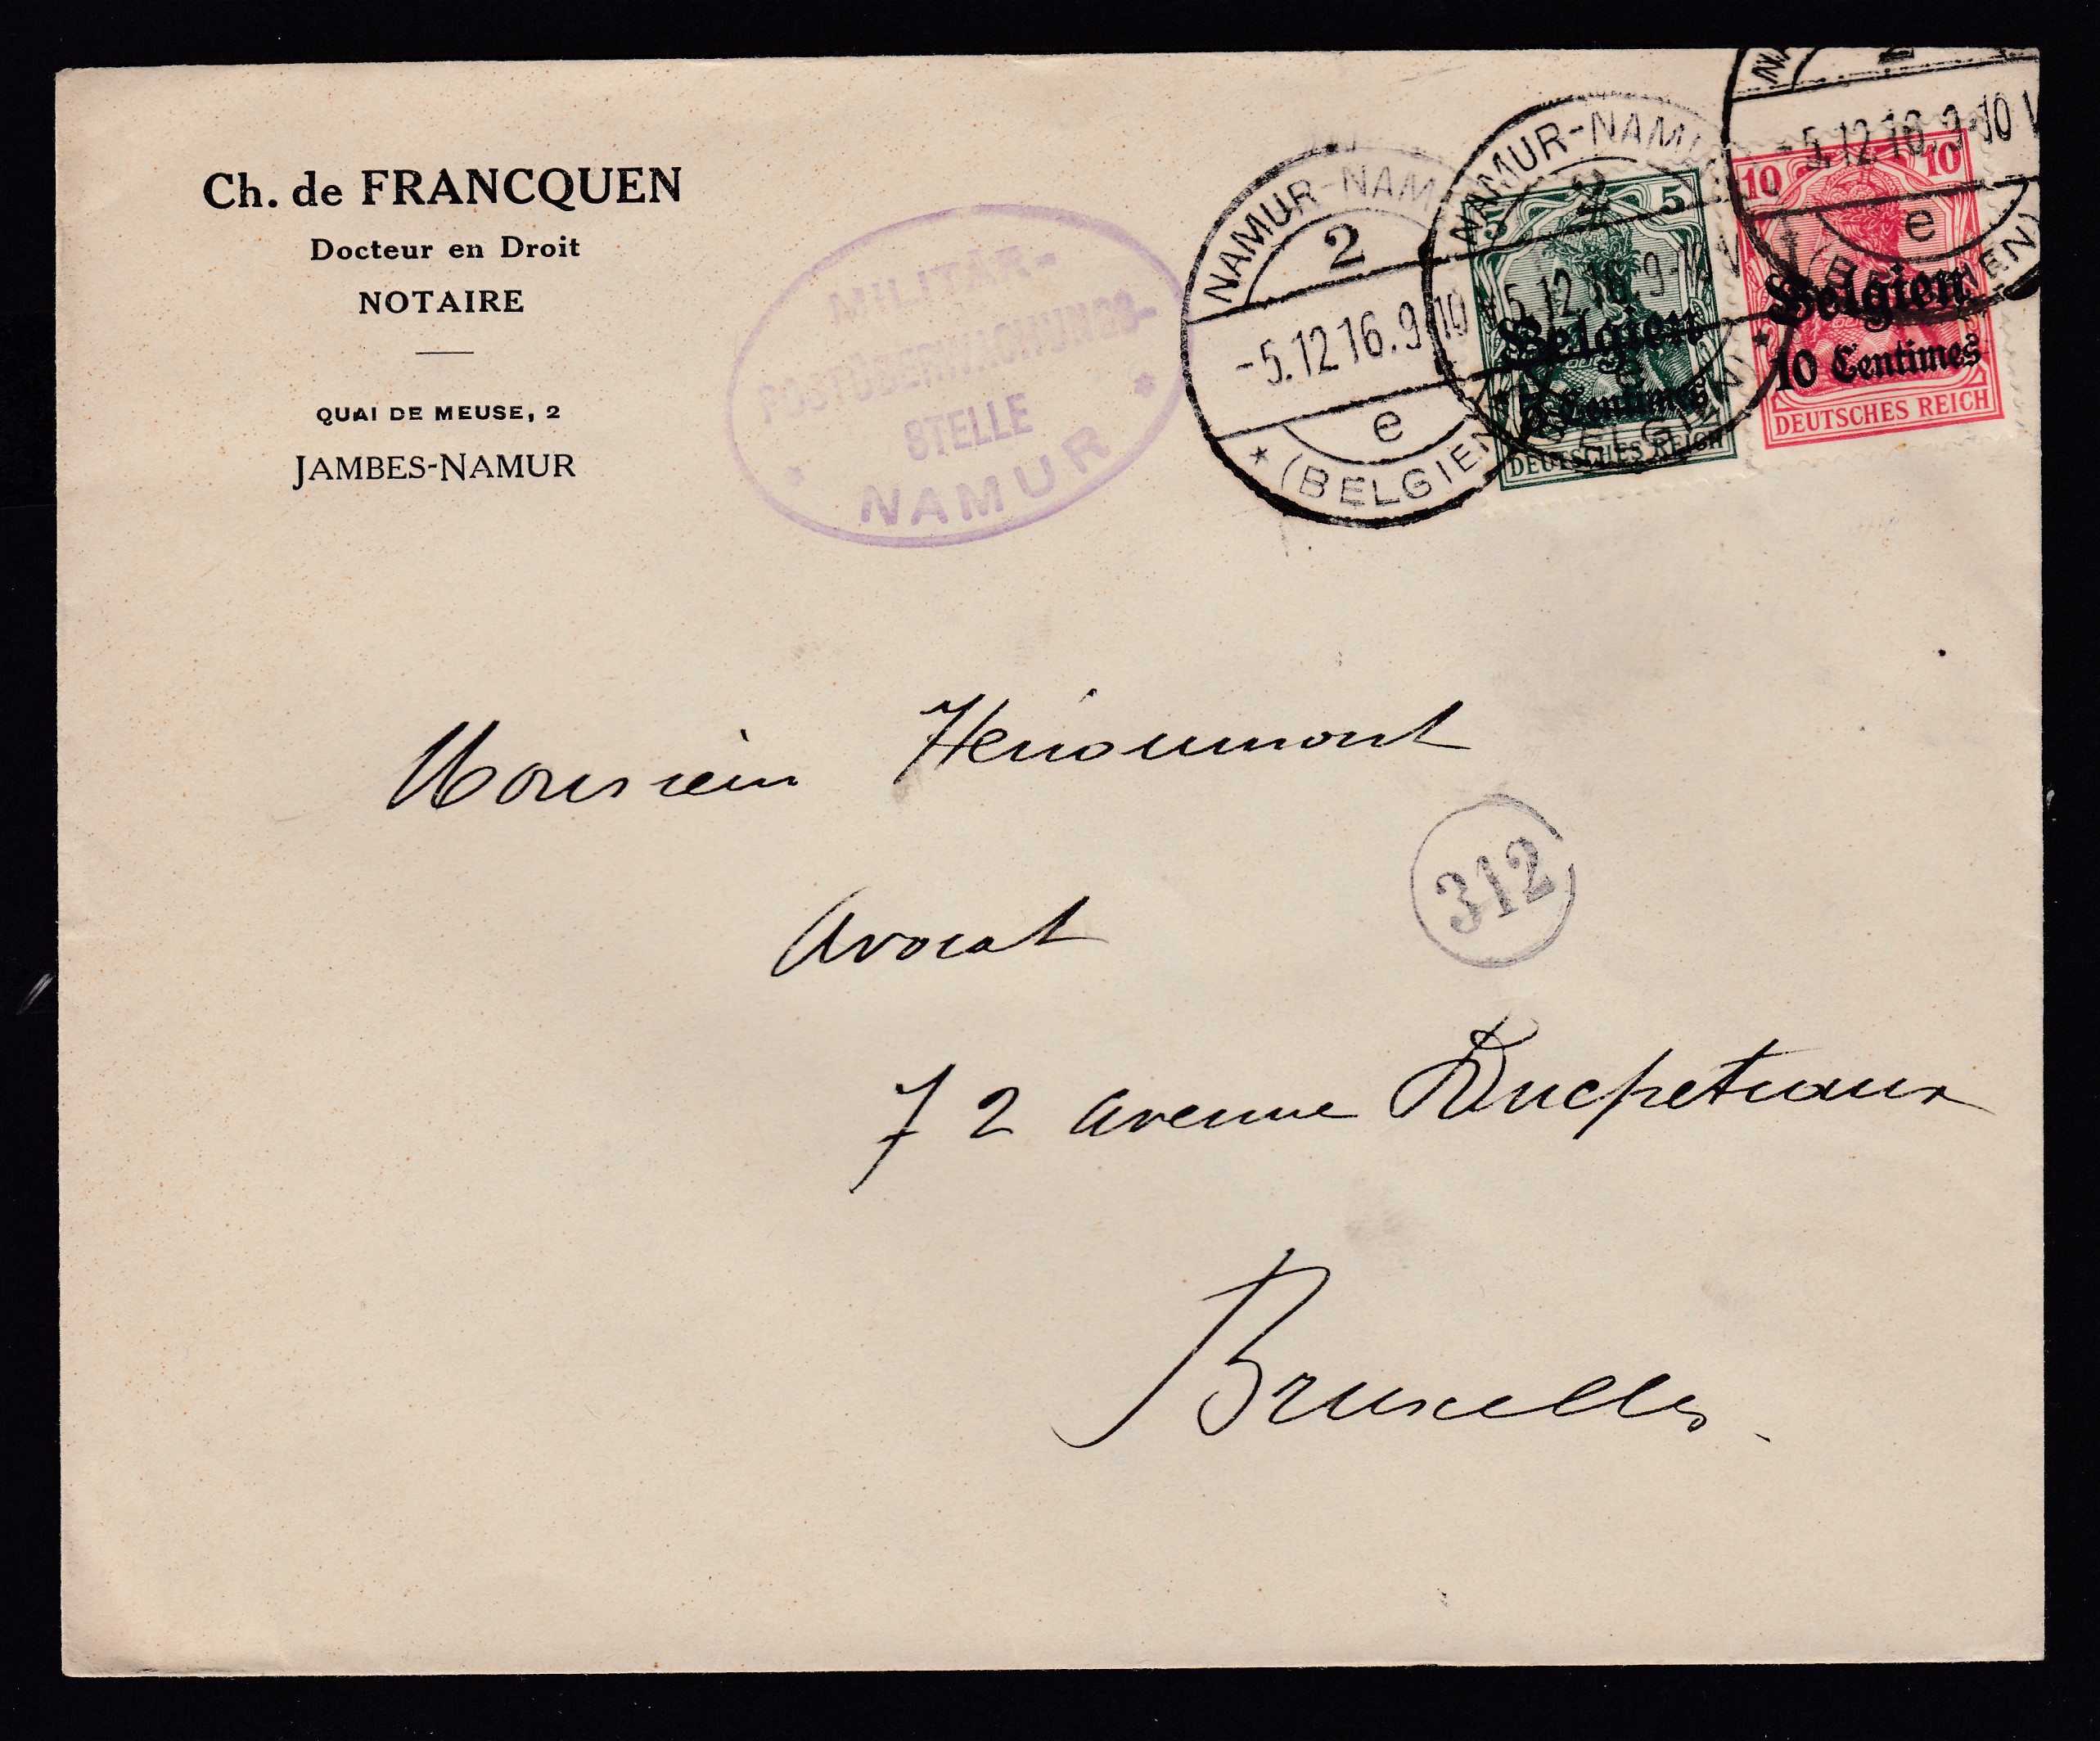 Ch. de FRANCQUEN
Docteur en Droit
NOTAIRE
QUAI DE MEUSE, 2
JAMBES-NAMUR
MILITÄR-
POSTÜBERWACHUNGS-
STELLE
* NAMUR *
NAMUR-NAM
2
-5.12.16.9-10
e
* (BELGIEN
NAMUR-NAMU
2
5.12.16.9-
e
BELGIEN) *
5 5
Belgien
5 Centimes
DEUTSCHES REICH
2
-5.12.16.9-10V
e
(BELGIEN)
10 10
Belgien
10 Centimes
DEUTSCHES REICH
Monsieur
Avocat
312
72 avenue Ducpetiaux
Bruxelles.